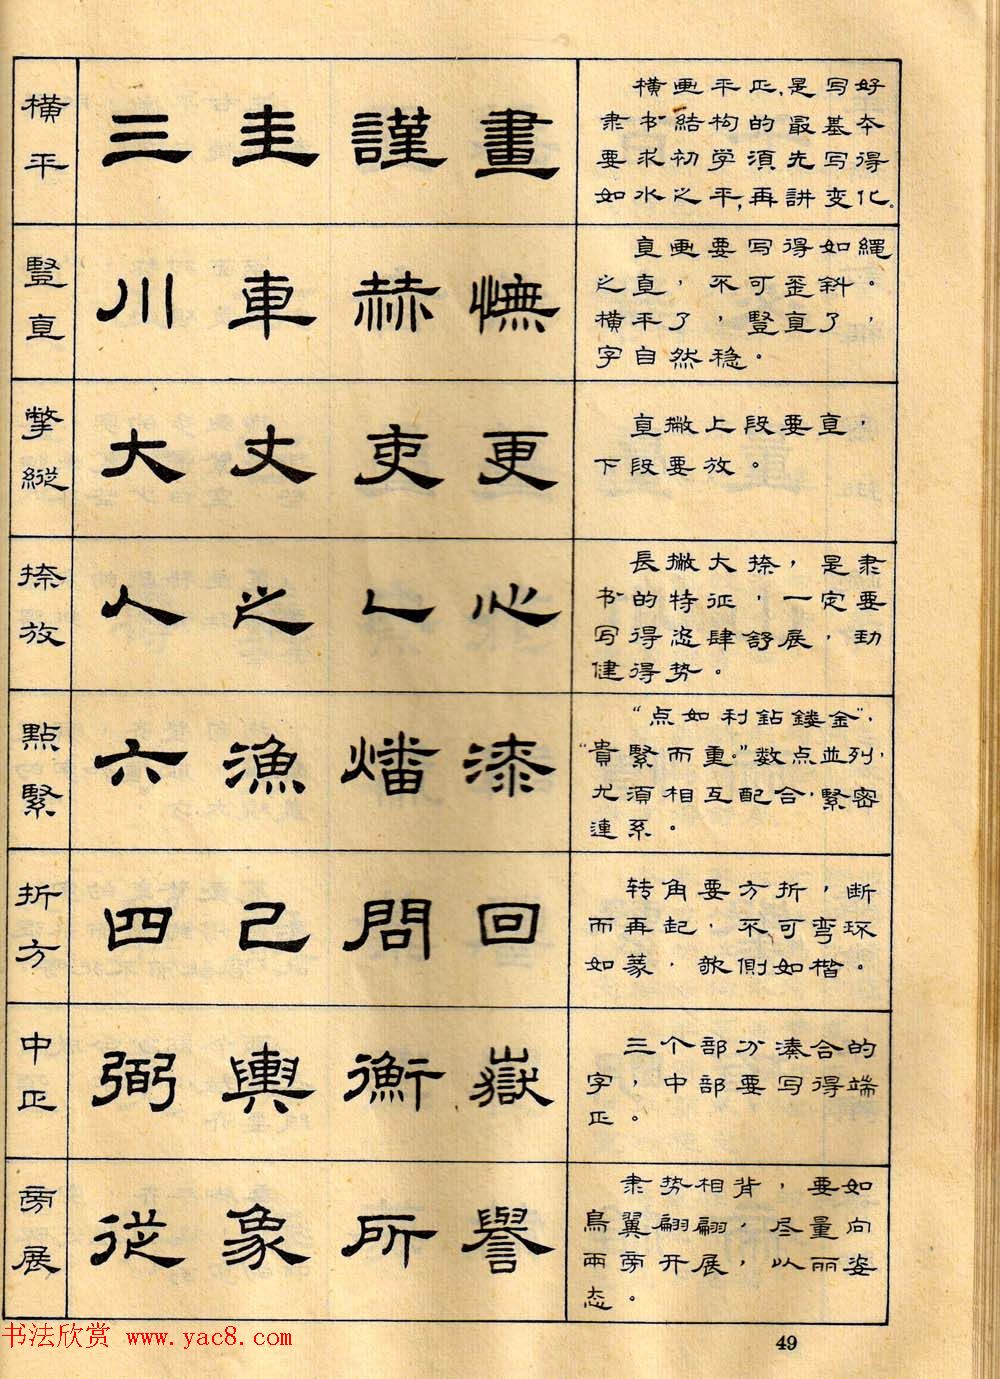 横平
三 圭 謹 畫
横画平正,是写好
隶书結构的最基本
要求初学須先写得
如水之平,再讲变化。
豎直
川 車 赫 憮
直画要写得如繩
之直，不可歪斜。
横平了，豎直了，
字自然稳。
撆縦
大 丈 吏 更
直撇上段要直，
下段要放。
捺放
人 之 乀 心
長撇大捺，是隶
书的特征，一定要
写得恣肆舒展，劲
健得势。
點緊
六 漁 燔 漆
“点如利鉆鏤金”，
“貴緊而重。”数点並列，
尤須相互配合,緊密
連系。
折方
四 己 問 回
转角要方折，断
而再起，不可弯环
如篆，欹側如楷。
中正
弼 輿 衡 嶽
三个部分湊合的
字，中部要写得端
正。
旁展
從 象 所 譽
隶势相背，要如
鳥翼翩翩，尽量向
兩旁开展，以丽姿
态。
书法欣赏 www.yac8.com
49